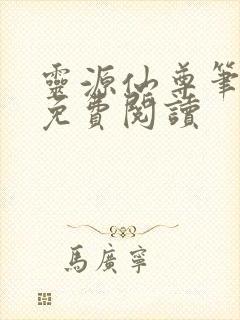 靈源仙尊筆
免費閱讀
馬廣寧